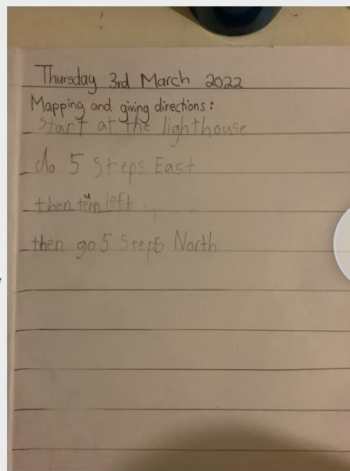 Thursday 3rd March 2022
Mapping and giving directions:
Start at the lighthouse
do 5 Steps East
then turn left
then go 5 Steps North